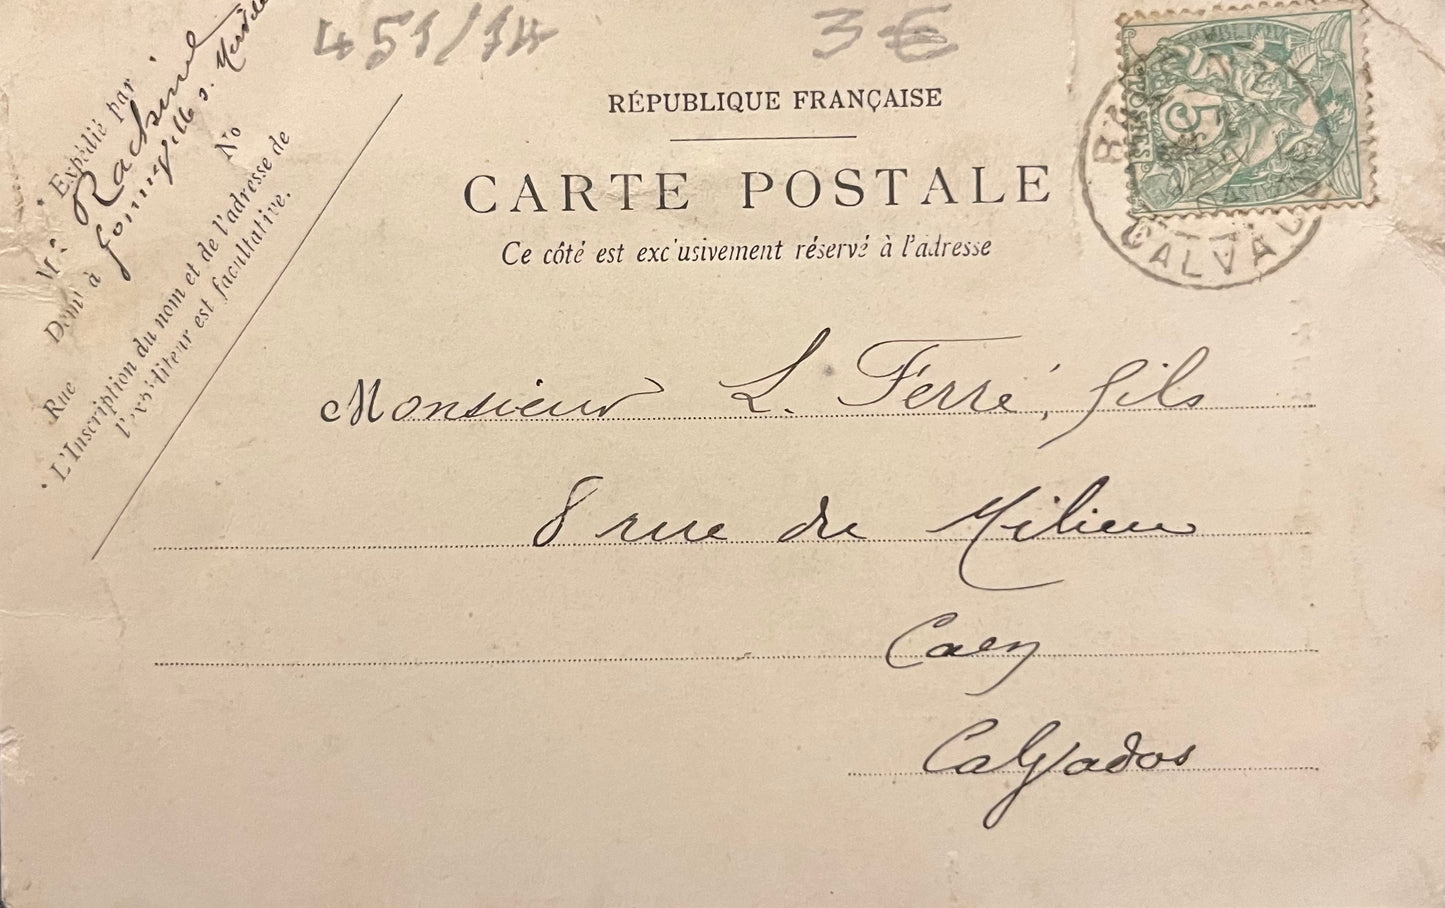 451/14
3€
RÉPUBLIQUE FRANÇAISE
CARTE POSTALE
Ce côté est exclusivement réservé à l'adresse
Expédié par
Mr Rachinel
Demt à
No
Rue
L'Inscription du nom et de l'adresse de
l'expéditeur est facultative.
POSTES
5
CALVAD
Monsieur L. Ferré, fils
8 rue du Milieu
Caen
Calvados